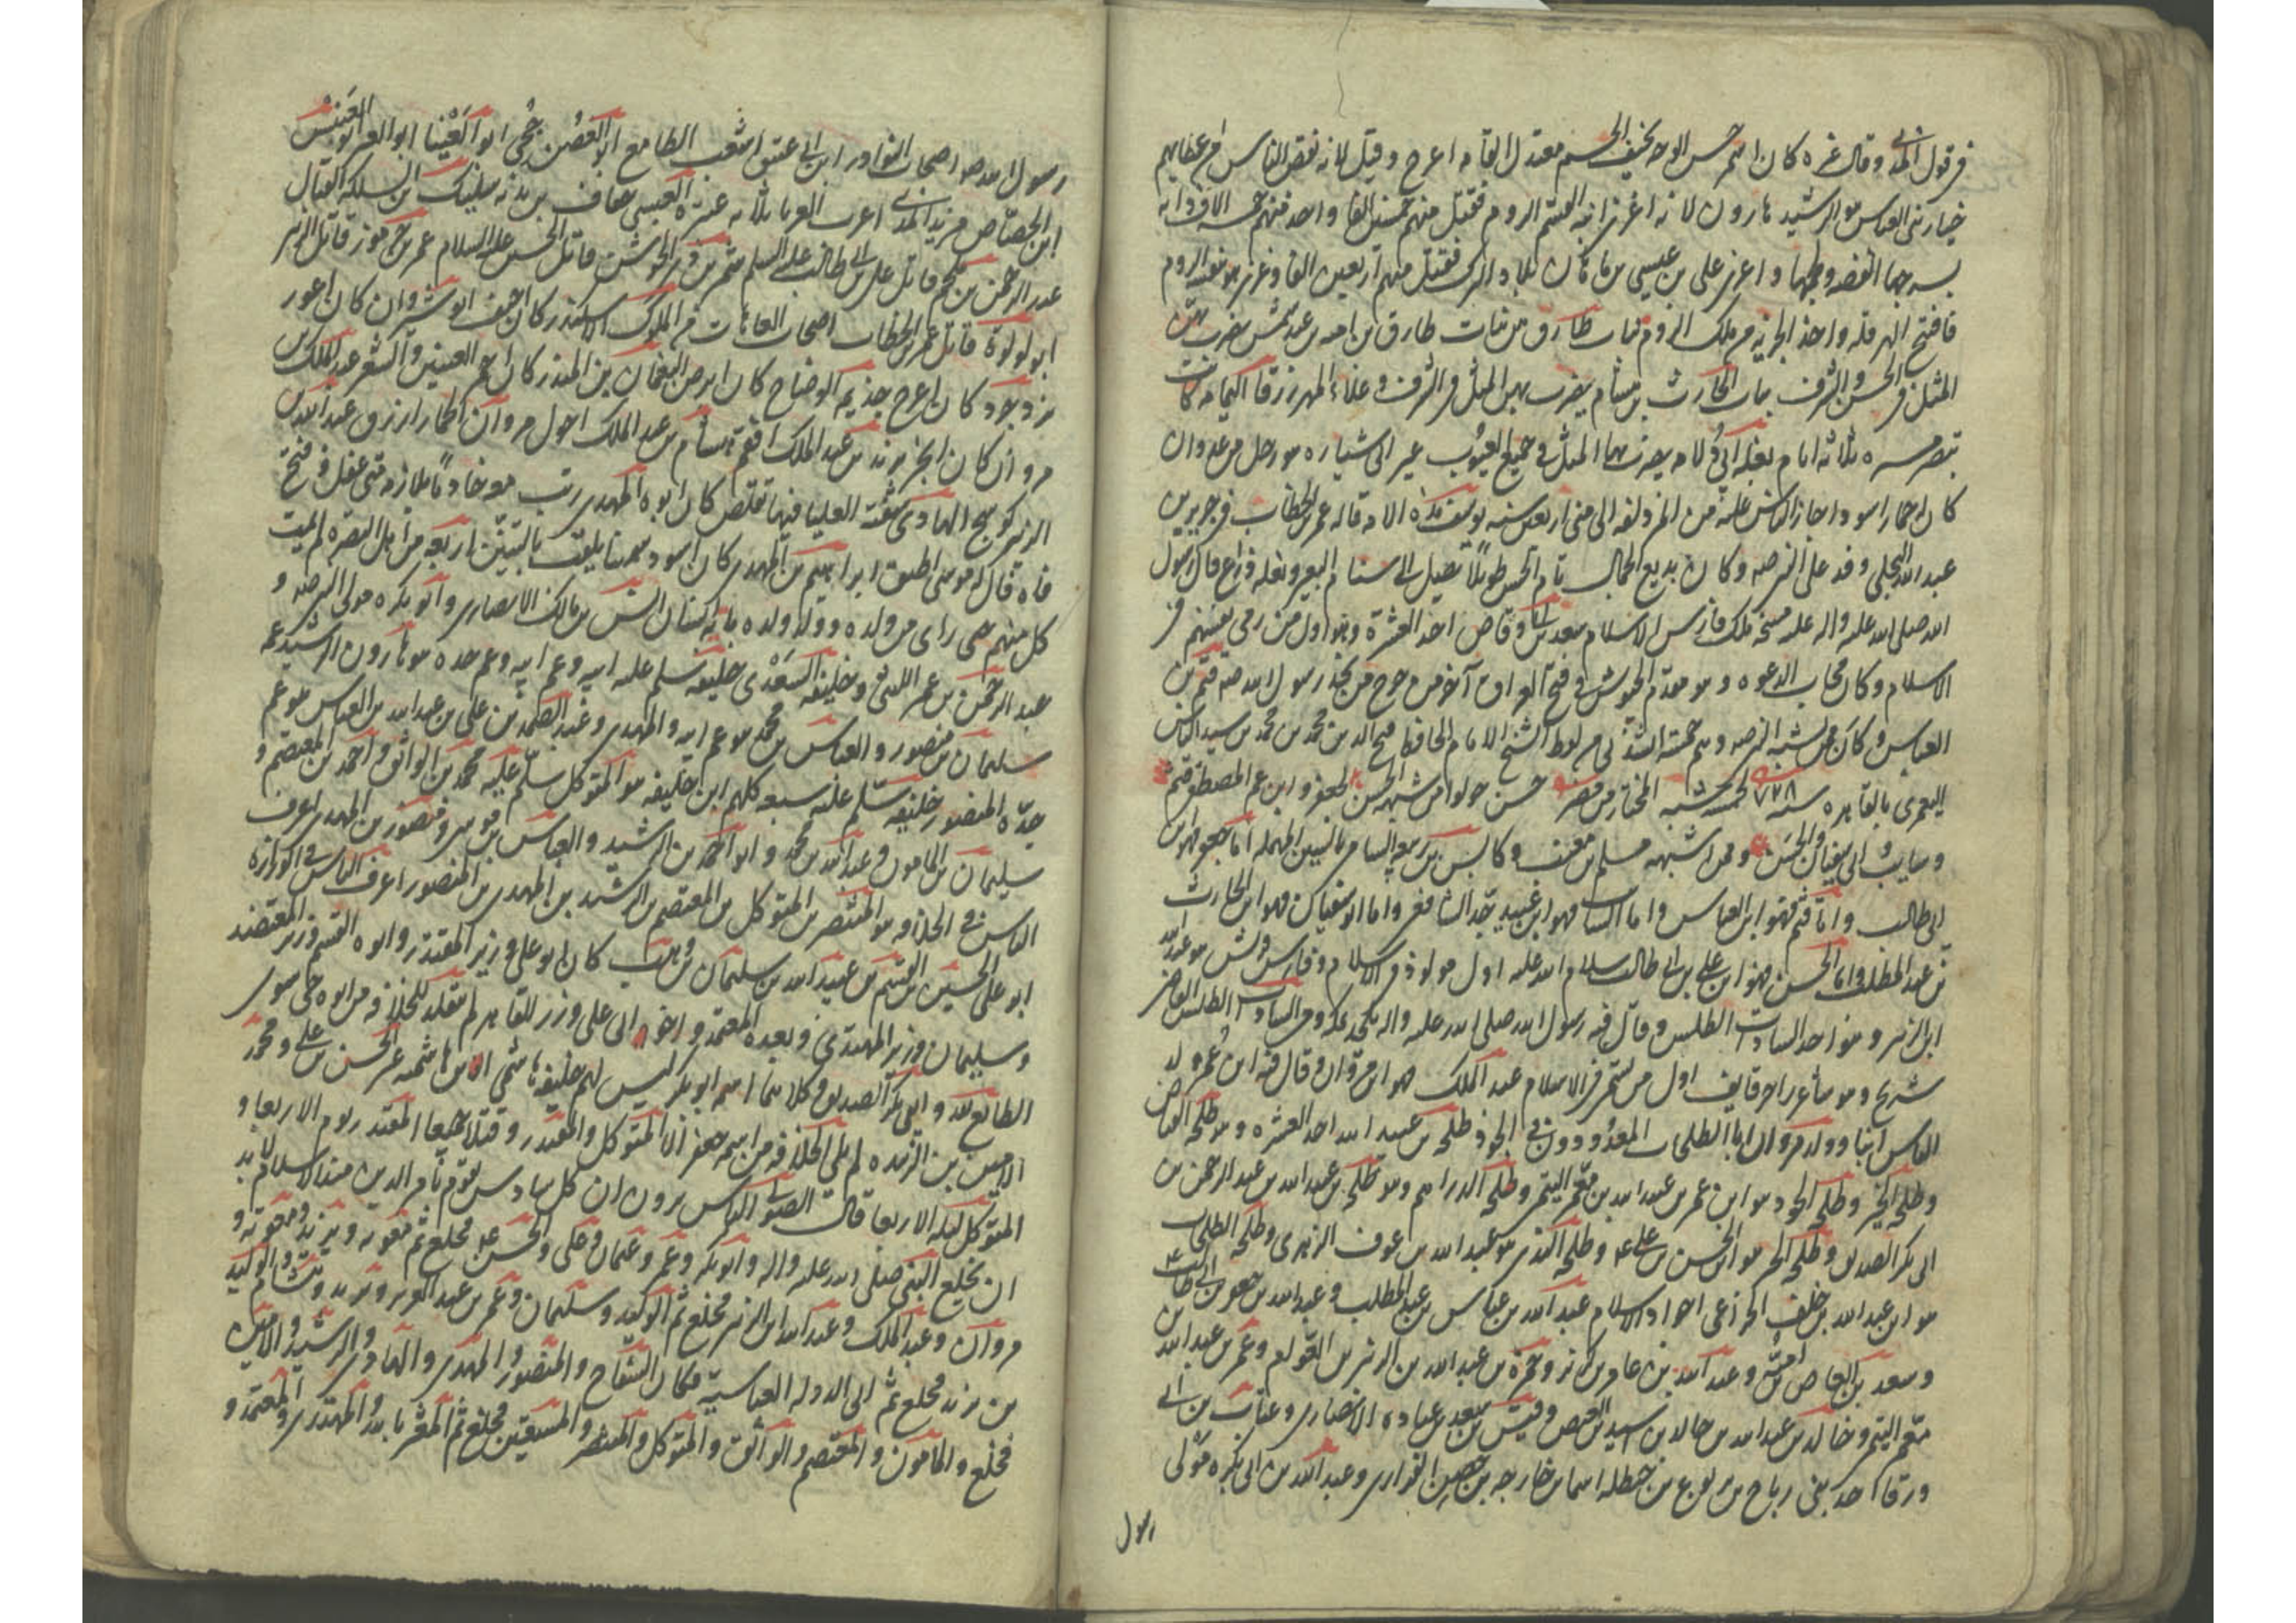 في قول المدني وقال غيره كان اسمر حسن الوجه نحيف الجسم معتدل القامة اعرج وقيل لانه نقص الناس من عطاياهم
خيار بني العباس هو الرشيد هارون لانه اغزى ابنه القسم الروم فقتل منهم خمسين الفا واخذ منهم خمسة الاف دابة
بسروجها الفضه ولجمها واغزى علي بن عيسى بن ماهان بلاد الترك فقتل منهم اربعين الفا وغزى هو بنفسه الروم
فافتح الهرقله واخذ الجزيه من ملك الروم بنات طارق من بنات طارق بن اميه بن عبد شمس يضرب بهن
المثل في الحسن والشرف بنات الحارث بن هشام يضرب بهن المثل في الشرف وغلاء المهر زرقا اليمامه كانت
تبصر مسيره ثلاثه ايام بغله ابي دلامه يضرب بها المثل في جميع العيوب عير ابي سياره هو رجل من عدوان
كان احمارا اسود اجاز الناس عليه من المزدلفه الى منى اربعين سنه يوسف هذه الامه قاله عمر بن الخطاب في جرير بن
عبد الله البجلي وفد على النبي صه وكان بديع الجمال تام الحسن طويلا يصل الى سنام البعير ونعله ذراع قال رسول
الله صلى الله عليه واله عليه مسحة ملك فارس الاسلام سعد بن ابي وقاص احد العشرة وهو اول من رمى بسهم في
الاسلام وكان مجاب الدعوه وهو مقدم الجيوش في فتح العراق آخر من خرج من لحد رسول الله صه قثم بن
العباس وكان ممن يشبه النبي صه وهم خمسة انشدني من لفظ الشيخ الامام الحافظ فتح الدين محمد بن محمد بن سيد الناس
اليعمري بالقاهره سنه ٧٢٨ لخمسة شبه المختار من مضر حسن خولوا من شبهه الحسن لجعفر وابن عم المصطفى قثم
وسايب وابي سفيان والحسن وممن اشبهه مسلم بن معتب وكابس بن ربيعه السامي بالسين المهمله اما جعفر فهو ابن
ابي طالب واما قثم فهو ابن العباس واما السايب فهو ابن عبيد جد الشافعي واما ابو سفيان فهو ابن الحارث
بن عبد المطلب واما الحسن فهو ابن علي بن ابي طالب سلام الله عليه اول مولود في الاسلام وفارس قريش هو عبد الله
ابن الزبير وهو احد السادات الطلس وقال فيه رسول الله صلى الله عليه واله من السادات الطلس القاضي
شريح وهو شاعر احد قايف اول من سمي في الاسلام عبد الملك هو ابن مروان وقال فيه ابن عمر ولد
الناس ابنا وولد مروان ابا الطلحات المعدودون في الجود طلحه بن عبيد الله احد العشره وهو طلحه الفياض
وطلحه الخير وطلحه الجود هو ابن عمر بن عبيد الله بن معمر التيمي وطلحه الدراهم وهو طلحه بن عبد الله بن عبد الرحمن بن
ابي بكر الصديق وطلحه الخير هو ابن الحسن بن علي ع وطلحه الندى هو عبد الله بن عوف الزهري وطلحه الطلحات
هو ابن عبد الله بن خلف الخزاعي اجواد الاسلام عبد الله بن عباس بن عبد المطلب وعبد الله بن جعفر بن ابي طالب
وسعد بن العاص بن امية وعبد الله بن عامر بن كريز وحمزه بن عبد الله بن الزبير بن العوام وعمر بن عبد الله بن
معمر التيمي وخالد بن عبد الله بن خالد بن اسيد بن العيص وقيس بن سعد بن عباده الانصاري وعتاب بن
ورقا احد بني رباح بن يربوع بن حنظله اسما بن خارجه بن حصن الفزاري وعبد الله بن ابي بكره مولى
رسول
رسول الله صه اصحاب النوادر ابن ابي عتيق اشعب الطامع ابو الغصن جحى ابو العينا ابو العبر ابو العنبس
ابن الجصاص مزبد المدني اغرب العرب ثلاثه عنتره العبسي خفاف بن ندبه سليك ابن السلكه القتال
عبد الرحمن بن ملجم قاتل علي بن ابي طالب عليه السلام شمر بن ذي الجوشن قاتل الحسين عليه السلام عمر بن جرموز قاتل الزبير
ابو لولوة قاتل عمر بن الخطاب اصحاب العاهات من الملوك الاسكندر كان اخنف انوشروان كان اعور
يزدجرد كان اعرج جذيمه الوضاح كان ابرص النعمان بن المنذر كان احمر العينين والشعر عبد الملك بن
مروان كان ابخر يزيد بن عبد الملك افقم هشام بن عبد الملك احول مروان الحمار ازرق عبد الله بن
الزبير كوسج الهادي شفته العليا فيها تقلص كان ابوه المهدي رتب معه خادما يلازمه متى غفل وفتح
فاه قال موسى اطبق ابراهيم بن المهدي كان اسود سمينا يلقب بالتنين اربعه من اهل البصره لم يمت
كل منهم حتى راى من ولده وولد ولده مايه انسان انس بن مالك الانصاري وابو بكره مولى النبي صه و
عبد الرحمن بن عمر الليثي وخليفه السعدي خليفه سلم عليه ابيه وعم ابيه وعم جده هو هارون الرشيد عمه
سليمان بن منصور والعباس بن محمد هو عم ابيه المهدي وعبد الصمد بن علي بن عبد الله بن العباس هو عم
جده المنصور خليفه سلم عليه سبعه كلهم ابن خليفه هو المتوكل سلم عليه محمد بن الواثق واحمد بن المعتصم و
سليمان بن المامون وعبد الله بن محمد وابو احمد بن الرشيد والعباس بن موسى ومنصور بن المهدي اعرف
الناس في الخلافه هو المنتصر بن المتوكل بن المعتصم بن الرشيد بن المهدي بن المنصور اعرف الناس في الوزاره
ابو علي الحسين بن القسم بن عبيد الله بن سليمان بن وهب كان ابو علي وزير المقتدر وابوه القسم وزير المعتضد
وسليمان وزير المهتدي وبعده المعتمد واخو ابي علي وزر للقاهر لم يتقلد للخلافه من ابوه حي سوى
الطايع لله وابي بكر الصديق وكلاهما اسمه ابو بكر ليس لهم خليفه هاشمي ابن هاشميه غير الحسن بن علي ومحمد
الامين بن زبيده لم يلي الخلافه من اسمه جعفر الا المتوكل والمقتدر وقتلا جميعا المقتدر يوم الاربعا و
المتوكل ليله الاربعا قال الصولي الناس يرون ان كل سادس يقوم بامر الدين منذ الاسلام لا بد
ان يخلع النبي صلى الله عليه واله وابو بكر وعمر وعثمان وعلي والحسن ع فخلع ثم معويه ويزيد ومعويه و
مروان وعبد الملك وعبد الله ابن الزبير فخلع ثم الوليد وسليمان وعمر بن عبد العزيز ويزيد وهشام والوليد
بن يزيد فخلع ثم ابن الدوله العباسيه فكان السفاح والمنصور والمهدي والهادي والرشيد والامين
فخلع والمامون والمعتصم والواثق والمتوكل والمنتصر والمستعين فخلع ثم المعتز بالله والمهتدي والمعتمد و